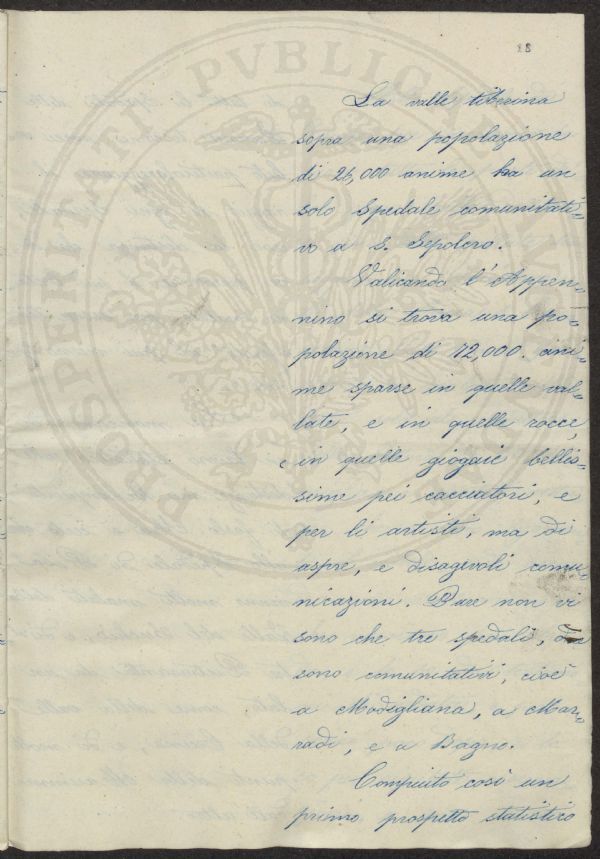 18
La valle tiberina
sopra una popolazione
di 26,000 anime ha un
solo Spedale comunitati=
vo a S. Sepolcro.
Valicando l'Appen=
nino si trova una po=
polazione di 72,000. ani=
me sparse in quelle val=
late, e in quelle rocce,
e in quelle giogaie bellis=
sime pei cacciatori, e
per li artisti, ma di
aspre, e disagevoli comu=
nicazioni. Pure non vi
sono che tre spedali,
sono comunitativi, cioè
a Modigliana, a Mar=
radi, e a Bagno.
Compiuto così un
primo prospetto statistico
PROSPERITATI PVBLICAE